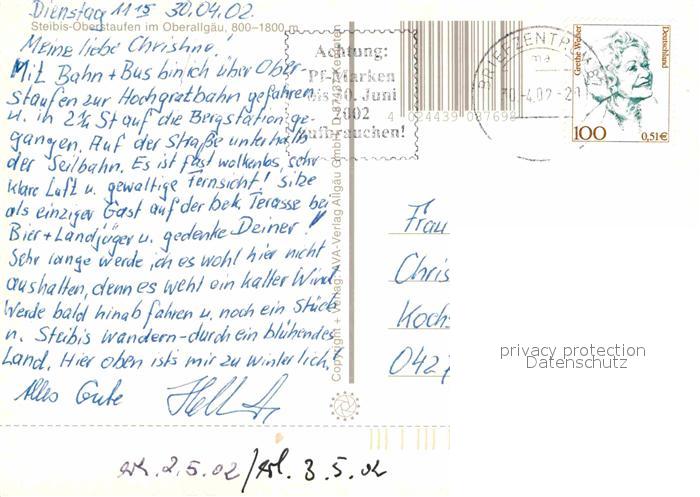 Dienstag 11 15 30.04.02.
Steibis-Oberstaufen im Oberallgäu, 800–1800 m
Meine liebe Christine!
Mit Bahn + Bus bin ich über Ober-
staufen zur Hochgratbahn gefahren
u. in 2¼ St auf die Bergstation ge-
gangen. Auf der Straße unterhalb
der Seilbahn. Es ist fast wolkenlos, sehr
klare Luft u. gewaltige Fernsicht! Sitze
als einziger Gast auf der bek. Terasse bei
Bier + Landjäger u. gedenke Deiner!
Sehr lange werde ich es wohl hier nicht
aushalten, denn es weht ein kalter Wind
Werde bald hinab fahren u. noch ein Stück
n. Steibis wandern - durch ein blühendes
Land. Hier oben ists mir zu winterlich!
Alles Gute
Copyright + Verlag: AVA-Verlag Allgäu GmbH, D-87437 Kempten
Achtung:
Pf-Marken
bis 30. Juni
2002
aufbrauchen!
4 024439 087698
BRIEFZENTRUM
ma
30.-4.02.-2
Grethe Weiser
Deutschland
100
0,51€
Frau
Chris
Koch-
0427
privacy protection
Datenschutz
erh. 2.5.02 / erl. 3.5.02